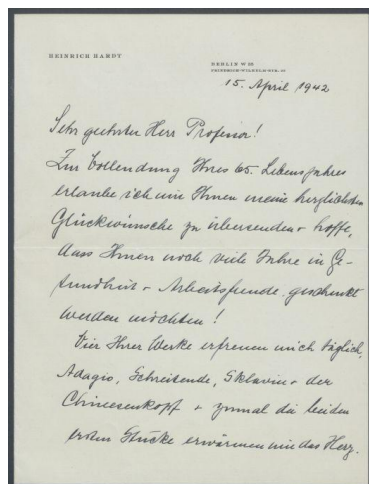 HEINRICH HARDT
BERLIN W 35
FRIEDRICH-WILHELM-STR.
15. April 1942
Sehr geehrter Herr Professor!
Zur Vollendung Ihres 65. Lebensjahres
erlaube ich mir Ihnen meine herzlichsten
Glückwünsche zu übersenden + hoffe,
dass Ihnen noch viele Jahre in Ge-
sundheit + Arbeitsfreude geschenkt
werden möchten!
Vier Ihrer Werke erfreuen mich täglich,
Adagio, Schreitende, Sklavin + der
Chinesenkopf + zumal die beiden
ersten Stücke erwärmen mir das Herz.